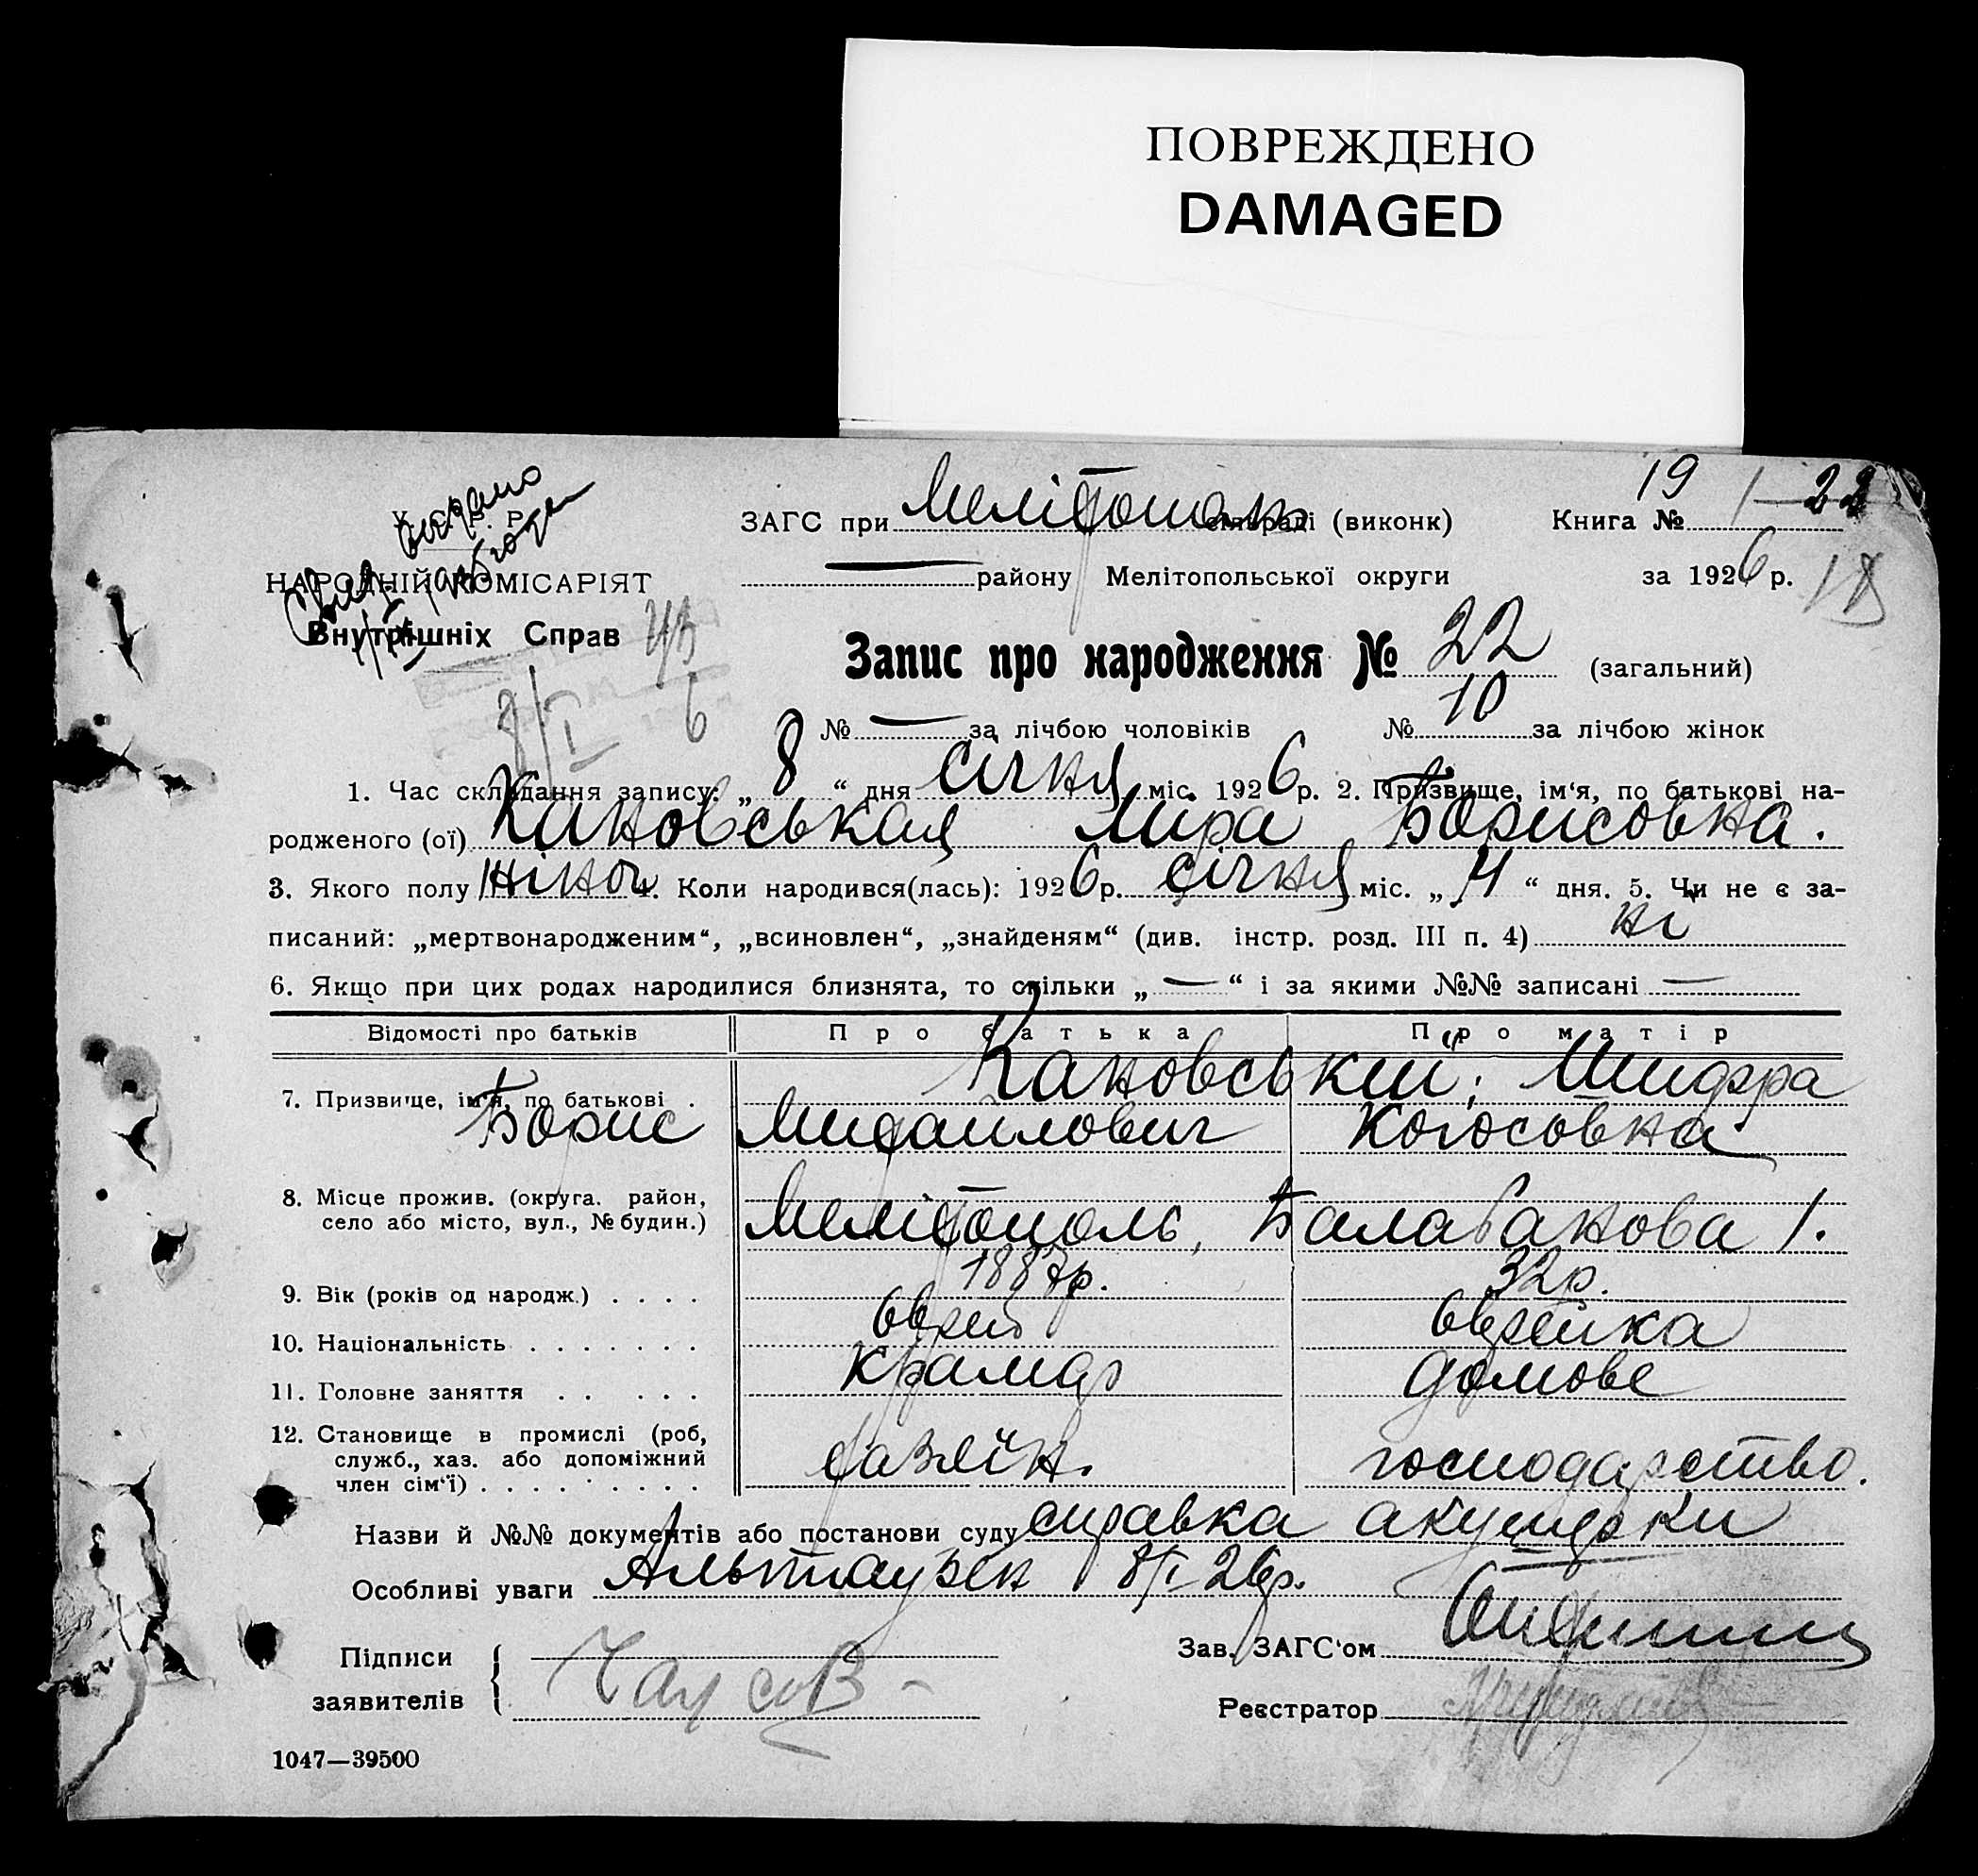 ПОВРЕЖДЕНО
DAMAGED
У. С. Р. Р.
ЗАГС при Мелітопол сільраді (виконк) Книга № 1—22
19
НАРОДНІЙ КОМІСАРІЯТ
району Мелітопольської округи за 1926 р. 18
Внутрішніх Справ
Запис про народження № 22 (загальний)
8/I 6
№ — за лічбою чоловіків № 10 за лічбою жінок
1. Час складання запису: „8“ дня січня міс. 1926 р. 2. Призвище, ім‘я, по батькові на-
родженого (ої) Кановськая Мира Борисовна.
3. Якого полу жіноч 4. Коли народився(лась): 1926 р. січня міс. „4“ дня. 5. Чи не є за-
писаний: „мертвонародженим“, „всиновлен“, „знайденям“ (див. інстр. розд. III п. 4) ні
6. Якщо при цих родах народилися близнята, то скільки „—“ і за якими №№ записані —
Відомості про батьків Про батька Про матір
7. Призвище, ім‘я, по батькові . Кановський; Шифра
Борис Михаилович
8. Місце прожив. (округа. район,
село або місто, вул., № будин.) Мелітополь, Балабанова 1.
9. Вік (років од народж.) . . . . 1887р. 32р.
10. Національність . . . . . . . еврей еврейка
11. Головне заняття . . . . . крамар домове
12. Становище в промислі (роб,
служб., хаз. або допоміжний
член сім‘ї) . . . . . . . . . хазяїн. господарство.
Назви й №№ документів або постанови суду справка акушерки
Особливі уваги Альтаузен 8/I 26р.
Підписи
заявителів
Зав. ЗАГС‘ом
Реєстратор
1047—39500